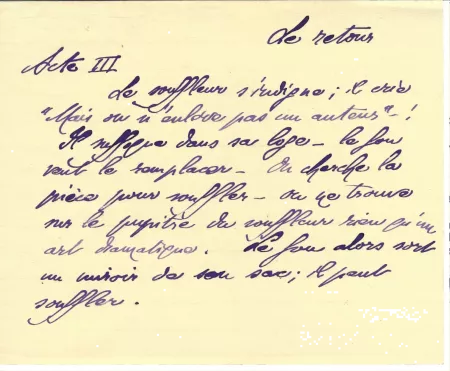 Le retour
Acte III
Le souffleur s'indigne ; il crie
"Mais on n'enlève pas un auteur" - !
Il suffoque dans sa loge - le fou
veut le remplacer - On cherche la
pièce pour souffler - on ne trouve
sur le pupitre du souffleur rien qu'un
art dramatique. Le fou alors sort
un miroir de son sac ; il peut
souffler.